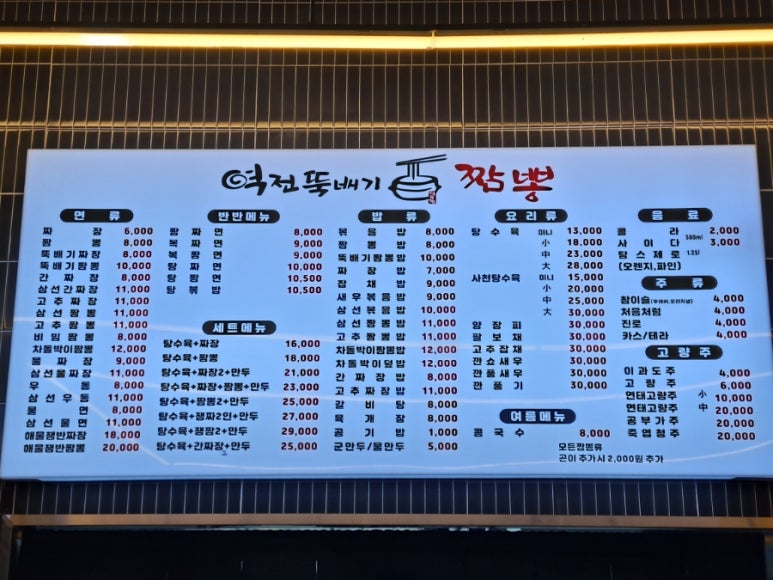 역전뚝배기 짬뽕
면 류
짜 장 6,000
짬 뽕 8,000
뚝배기짜장 8,000
뚝배기짬뽕 10,000
간 짜 장 8,000
삼선간짜장 11,000
고추짜장 11,000
삼선짬뽕 11,000
고추짬뽕 11,000
비빔짬뽕 8,000
차돌박이짬뽕 12,000
물 짜 장 9,000
삼선물짜장 11,000
우 동 8,000
삼선우동 11,000
울 면 8,000
삼선울면 11,000
해물쟁반짜장 18,000
해물쟁반짬뽕 20,000
반반메뉴
짬짜면 8,000
복짜면 9,000
복짬면 9,000
탕짜면 10,000
탕짬면 10,500
탕볶밥 10,500
세트메뉴
탕수육+짜장 16,000
탕수육+짬뽕 18,000
탕수육+짜장2+만두 21,000
탕수육+짜장+짬뽕+만두 23,000
탕수육+짬뽕2+만두 25,000
탕수육+쟁짜2인+만두 27,000
탕수육+쟁짬2+만두 29,000
탕수육+간짜장+만두 25,000
밥 류
볶음밥 8,000
짬뽕밥 8,000
뚝배기짬뽕밥 10,000
짜장밥 7,000
잡채밥 9,000
새우볶음밥 9,000
삼선볶음밥 10,000
삼선짬뽕밥 11,000
고추짬뽕밥 11,000
차돌박이짬뽕밥 12,000
차돌박이덮밥 12,000
간짜장밥 8,000
고추짜장밥 11,000
갈비탕 8,000
육개장 8,000
공기밥 1,000
군만두/물만두 5,000
요리류
탕수육 미니 13,000
小 18,000
中 23,000
大 28,000
사천탕수육 미니 15,000
小 20,000
中 25,000
大 30,000
양장피 30,000
짬보채 30,000
고추잡채 30,000
깐쇼새우 30,000
깐풍새우 30,000
깐풍기 30,000
여름메뉴
콩국수 8,000
음료
콜 라 500ml 2,000
사이다 1.25l 3,000
탐스제로
(오렌지,파인)
주류
참이슬 4,000
처음처럼 4,000
진로 4,000
카스/테라 4,000
고량주
이과도주 4,000
고량주 6,000
연태고량주 小 10,000
연태고량주 中 20,000
공부가주 20,000
죽엽청주 20,000
모든짬뽕류
곤이 추가시 2,000원 추가